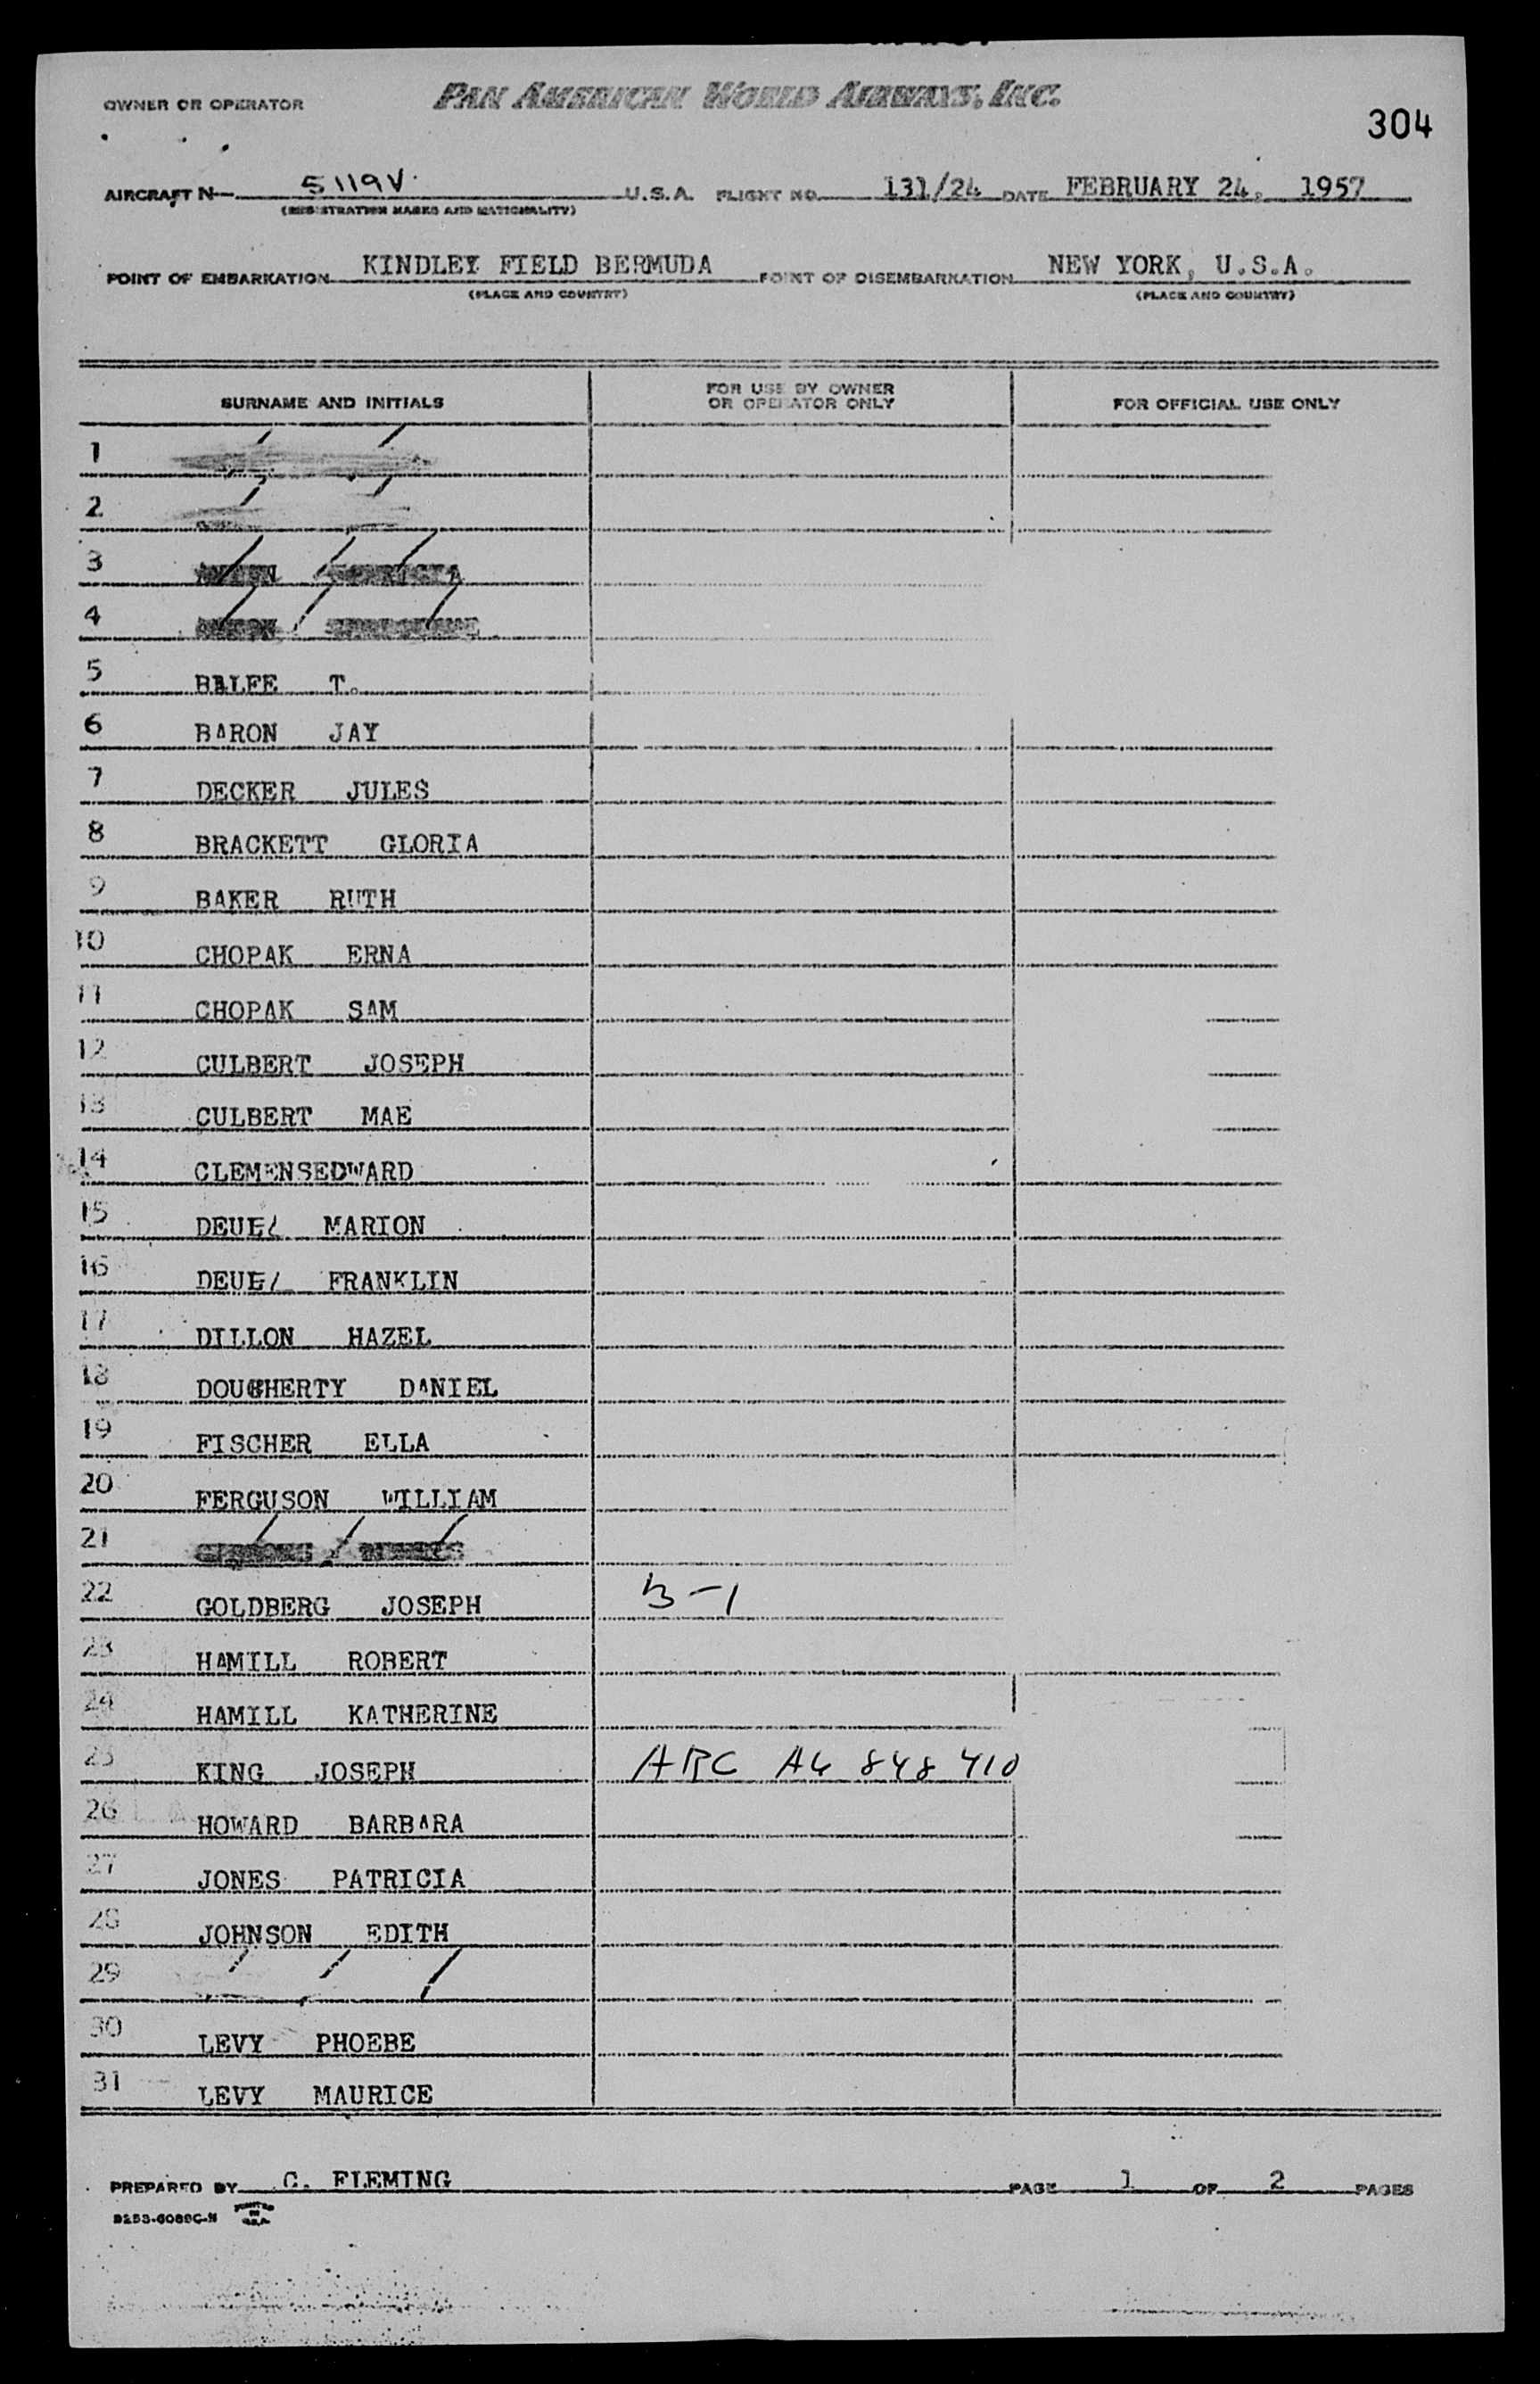 OWNER OR OPERATOR PAN AMERICAN WORLD AIRWAYS, INC.
304
AIRCRAFT N— 5119V U.S.A. FLIGHT NO. 131/24 DATE FEBRUARY 24, 1957
(REGISTRATION MARKS AND NATIONALITY)
POINT OF EMBARKATION KINDLEY FIELD BERMUDA POINT OF DISEMBARKATION NEW YORK, U.S.A.
(PLACE AND COUNTRY) (PLACE AND COUNTRY)
SURNAME AND INITIALS FOR USE BY OWNER OR OPERATOR ONLY FOR OFFICIAL USE ONLY
1
2
3
4
5 BALFE T.
6 BARON JAY
7 DECKER JULES
8 BRACKETT GLORIA
9 BAKER RUTH
10 CHOPAK ERNA
11 CHOPAK SAM
12 CULBERT JOSEPH
13 CULBERT MAE
14 CLEMENSEDWARD
15 DEUEL MARION
16 DEUEL FRANKLIN
17 DILLON HAZEL
18 DOUGHERTY DANIEL
19 FISCHER ELLA
20 FERGUSON WILLIAM
21
22 GOLDBERG JOSEPH B-1
23 HAMILL ROBERT
24 HAMILL KATHERINE
25 KING JOSEPH ARC A6 848 410
26 HOWARD BARBARA
27 JONES PATRICIA
28 JOHNSON EDITH
29
30 LEVY PHOEBE
31 LEVY MAURICE
PREPARED BY C. FLEMING PAGE 1 OF 2 PAGES
PRINTED IN U.S.A.